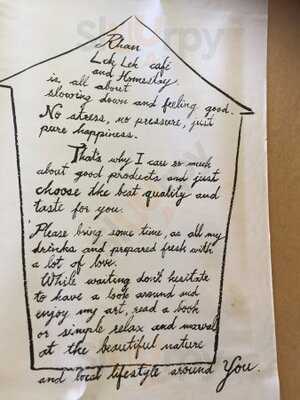 Rhan
Lek Lek café
and Homestay,
is, all about
slowing down and feeling good.
No stress, no pressure, just
pure happiness.
That's why I care so much
about good products and just
choose the best quality and
taste for you.
Please bring some time, as all my
drinks and prepared fresh with
a lot of love.
While waiting don't hesitate
to have a look around and
enjoy my art, read a book
or simple relax and marvel
at the beautiful nature
and local lifestyle around you.